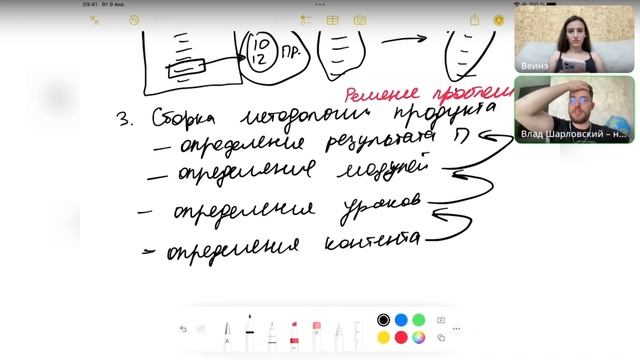 09:41 Вт 9 янв.
100 %
10
12
ПР.
Решение проблем
3. Сборка методологии продукта
– определение результата П
– определения модулей
– определения уроков
– определения контента
Веинэ
Влад Шарловский – н...